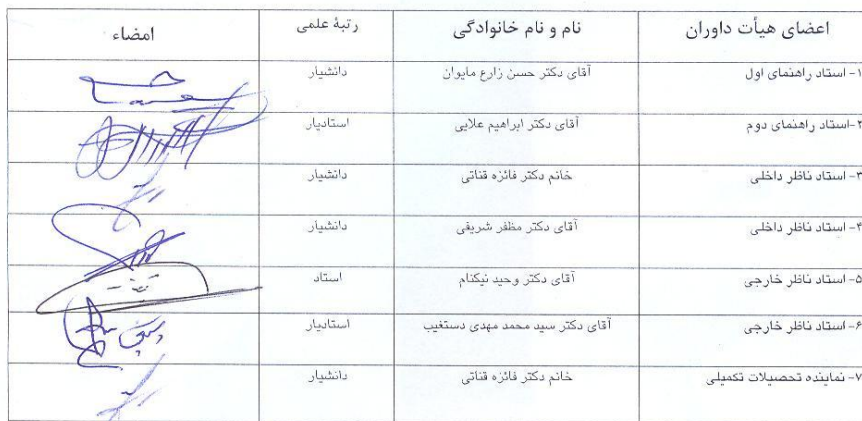 اعضای هیأت داوران	نام و نام خانوادگی	رتبۀ علمی	امضاء
۱- استاد راهنمای اول	آقای دکتر حسن زارع مایوان	دانشیار
۲-استاد راهنمای دوم	آقای دکتر ابراهیم علایی	استادیار
۳- استاد ناظر داخلی	خانم دکتر فائزه قناتی	دانشیار
۴- استاد ناظر داخلی	آقای دکتر مظفر شریفی	دانشیار
۵- استاد ناظر خارجی	آقای دکتر وحید نیکنام	استاد
۶- استاد ناظر خارجی	آقای دکتر سید محمد مهدی دستغیب	استادیار
۷- نماینده تحصیلات تکمیلی	خانم دکتر فائزه قناتی	دانشیار